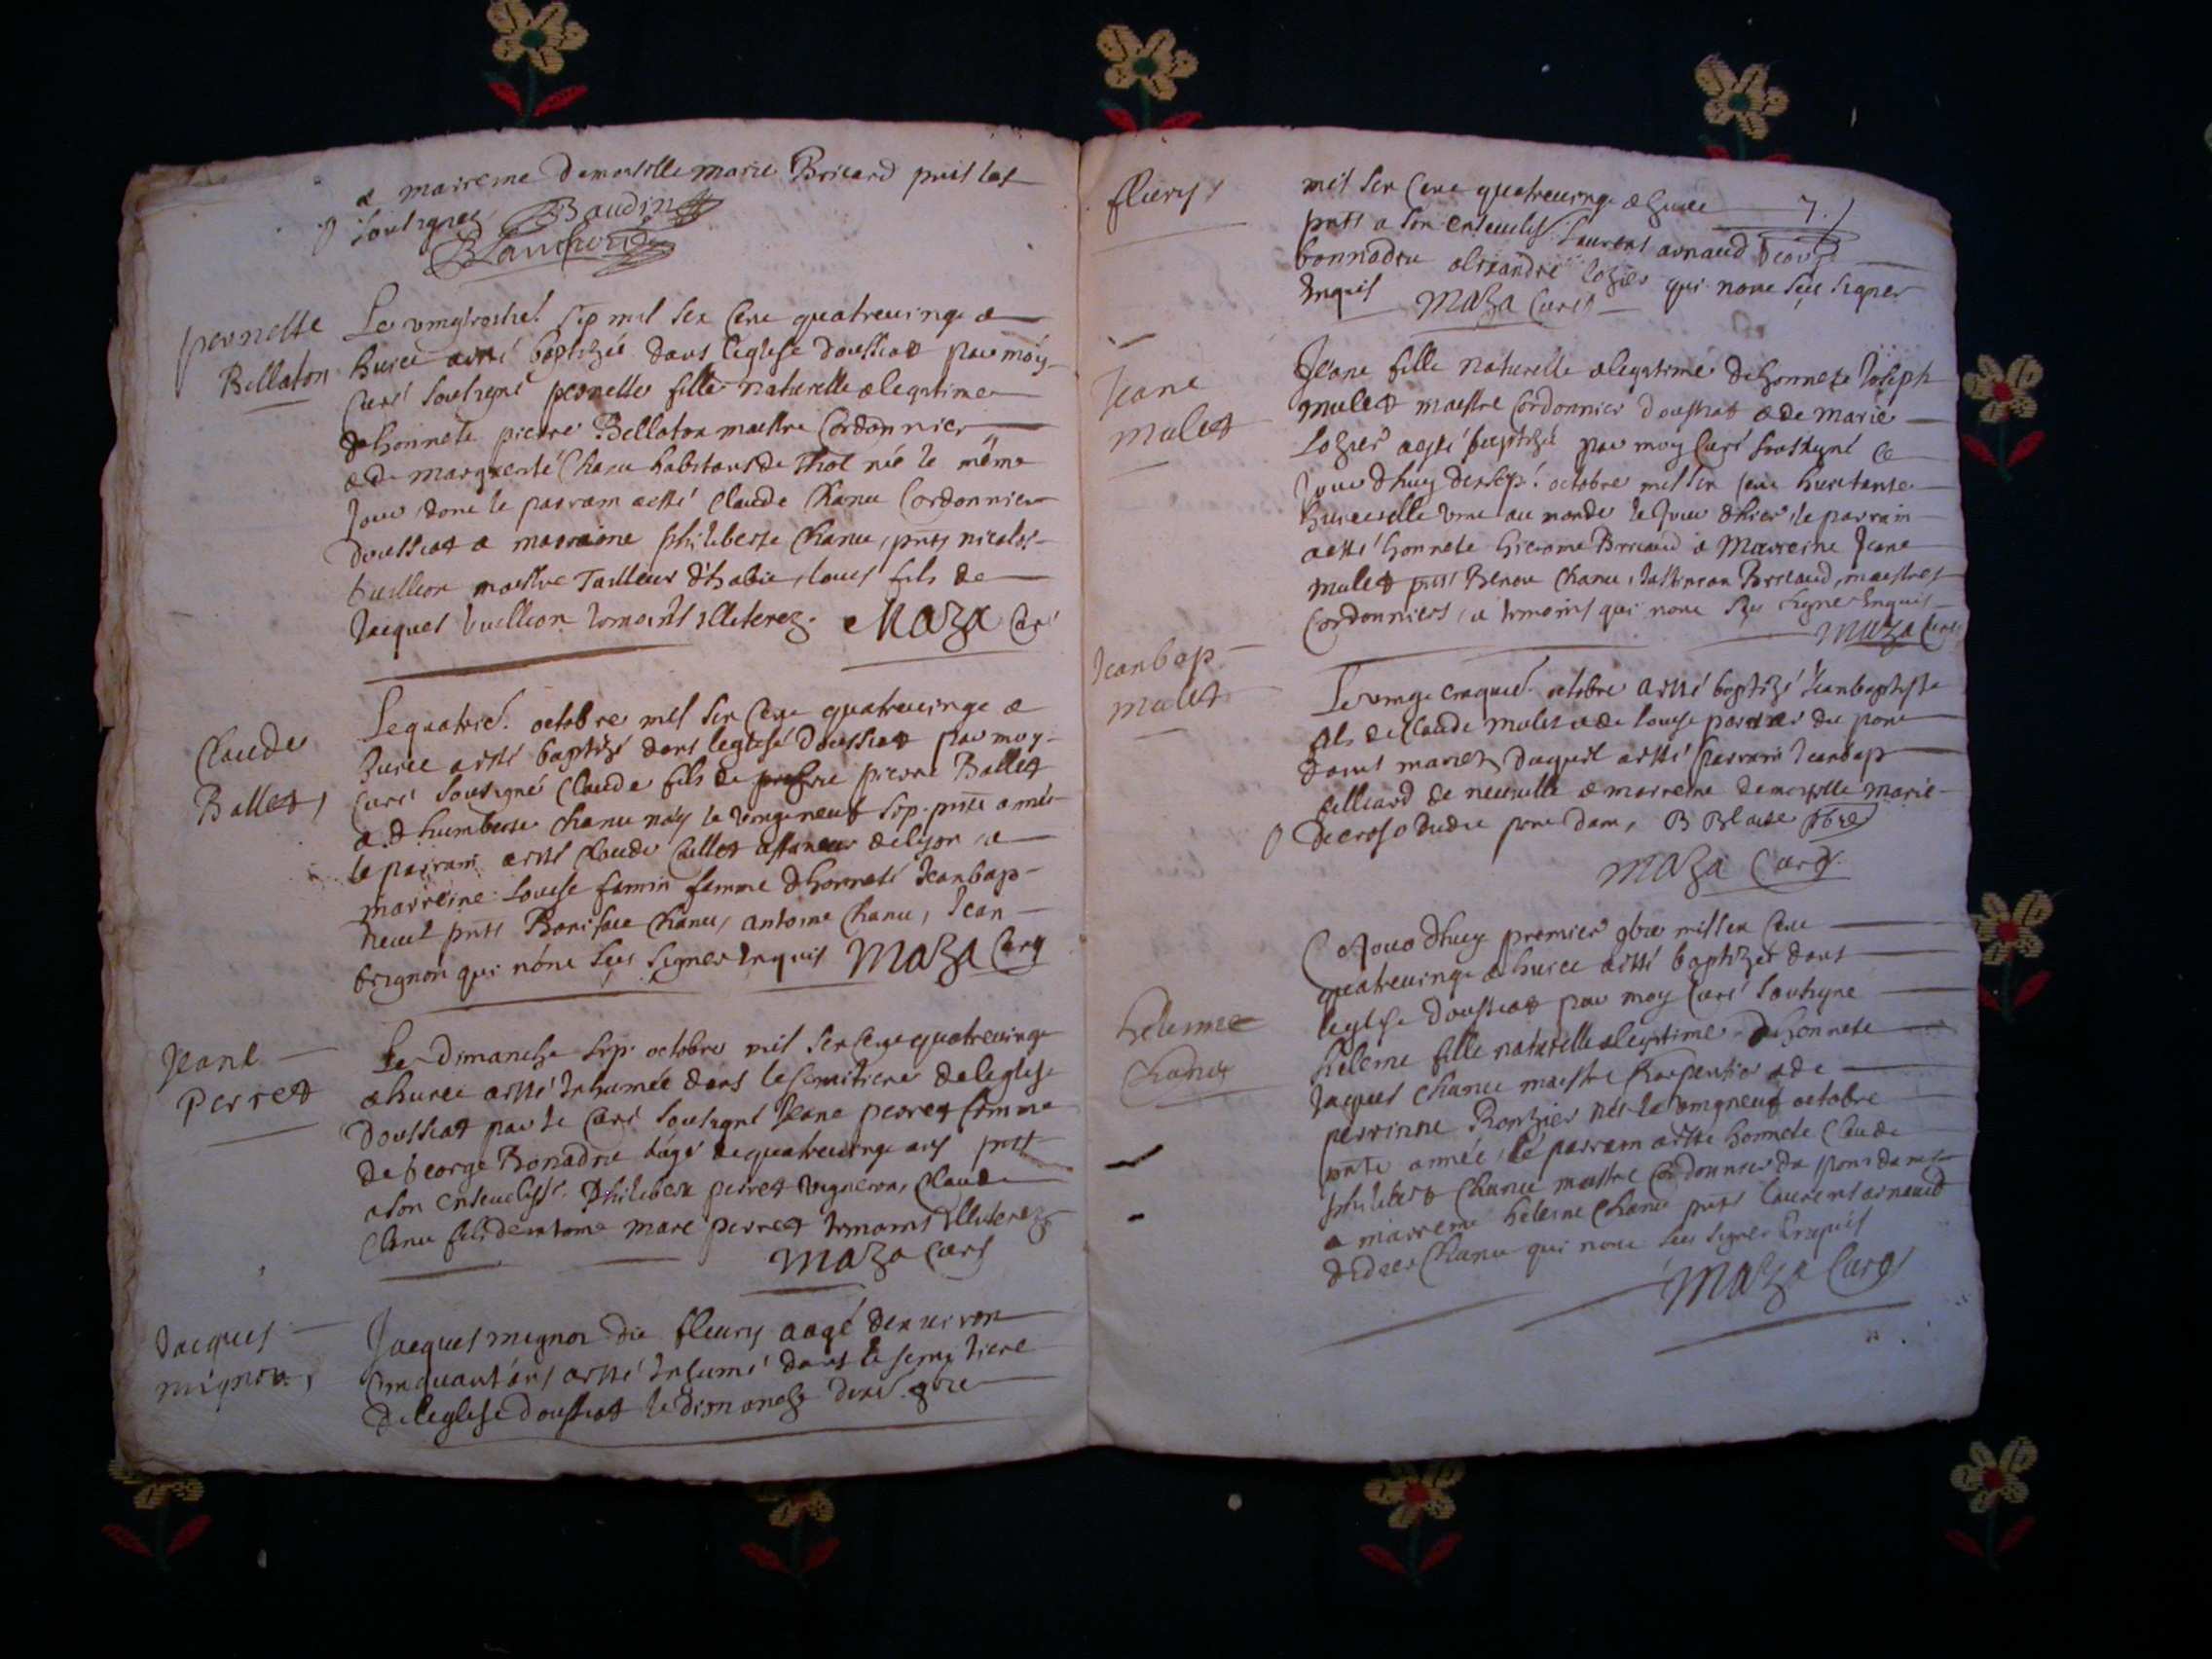 & marreine Damoiselle marie Bricard
soubsignez Baudin
Blanchond
pernette
Bellaton
Le vingtroisie. sep mil six cent quatreuingt &
huict baptizée dans leglise doussiat par moy
Curé soubsigné pernette fille naturelle & legitime
de honnete pierre Bellaton maistre Cordonnier
& de marguerite Chanu habitans de Thol née le même
jour dont le parrain a esté Claude Chanu Cordonnier
doussiat & marraine philiberte Chanu, pnts nicolas
vuillion maistre Tailleur d'habit, fils de
jacques vuillion temoins illiterez. Maza Curé
Claude
Ballet,
Le quatrie. octobre mil six cent quatreuingt &
huict a esté baptizé dans leglise doussiat par moy
Curé soubsigné Claude fils de pierre Ballet
& d humberte Chanu nay le vingneuf sep. pnte année
le parrain a esté Claude Caillet de lyon, &
marreine Louise famin femme dhonneté Jeanbap-
pnts Boniface Chanu, antoine Chanu, Jean
brignon qui nont sceu signer Enquis Maza Curé
Jeane
Perret
Le Dimanche sep. octobre mil six cent quatreuingt
& huict a esté Inhumée dans le semitiere de leglise
Doussiat par le Curé soubsigné Jeane perret femme
de George Bonadru aagé de quatreuingt ans pnts
a son enseuelisst. Philibert perret vigneron, Claude
Chanu fils dantoine marc perret temoins illiterez
Maza Curé
Jacques
mignon,
Jacques mignon dit fleury aagé denuiron
Cinquant ans a esté Inhumé dans le semitiere
de leglise doussiat le dimanche
fleury
mil six cent quatreuingt & huict 7.
pnts a son enseuelis. Laurent arnaud George
bonnadru alixandre lozier qui nont sceu signer
Enquis Maza Curé
Jeane
mulet
Jeane fille naturelle & legitime de honnete Joseph
mulet maistre Cordonnier doussiat & de marie
Lozier a esté baptizée par moy Curé soubsigné Ce
Jour dhuy dixsep. octobre mil six cent huictante
huict elle vint au monde le Jour dhier, le parrain
a esté honnete hierome Bricaud & Marreine Jeane
mulet pnts Benoit Chanu, Bricaud, maistres
Cordonniers, & temoins qui nont sceu signer Enquis
Maza Curé
Jeanbap
mulet
Le vingt cinquie. octobre a esté baptizé Jeanbaptiste
fils de Claude mulet & de louise du pont
dains mariez, duquel a esté parrain Jeanbap
billiard de neuuille & marreine demoiselle marie
decroso dudit pont dain, B Blaise pbre
Maza Curé
heleine
Chanu
Ce Jour dhuy premier 9bre mil six cent
quatreuingt & huict a esté baptizée dans
leglise doussiat par moy Curé soubsigné
heleine fille naturelle & legitime de honnete
Jaques Chanu maistre Charpentier & de
perrinne Ronzier née le vingneuf octobre
pnte année, le parrain a esté honnete Claude
philibert Chanu maistre Cordonnier du pont dains
& marreine heleine Chanu pnts laurent arnaud
didier Chanu qui nont sceu signer Enquis
Maza Curé